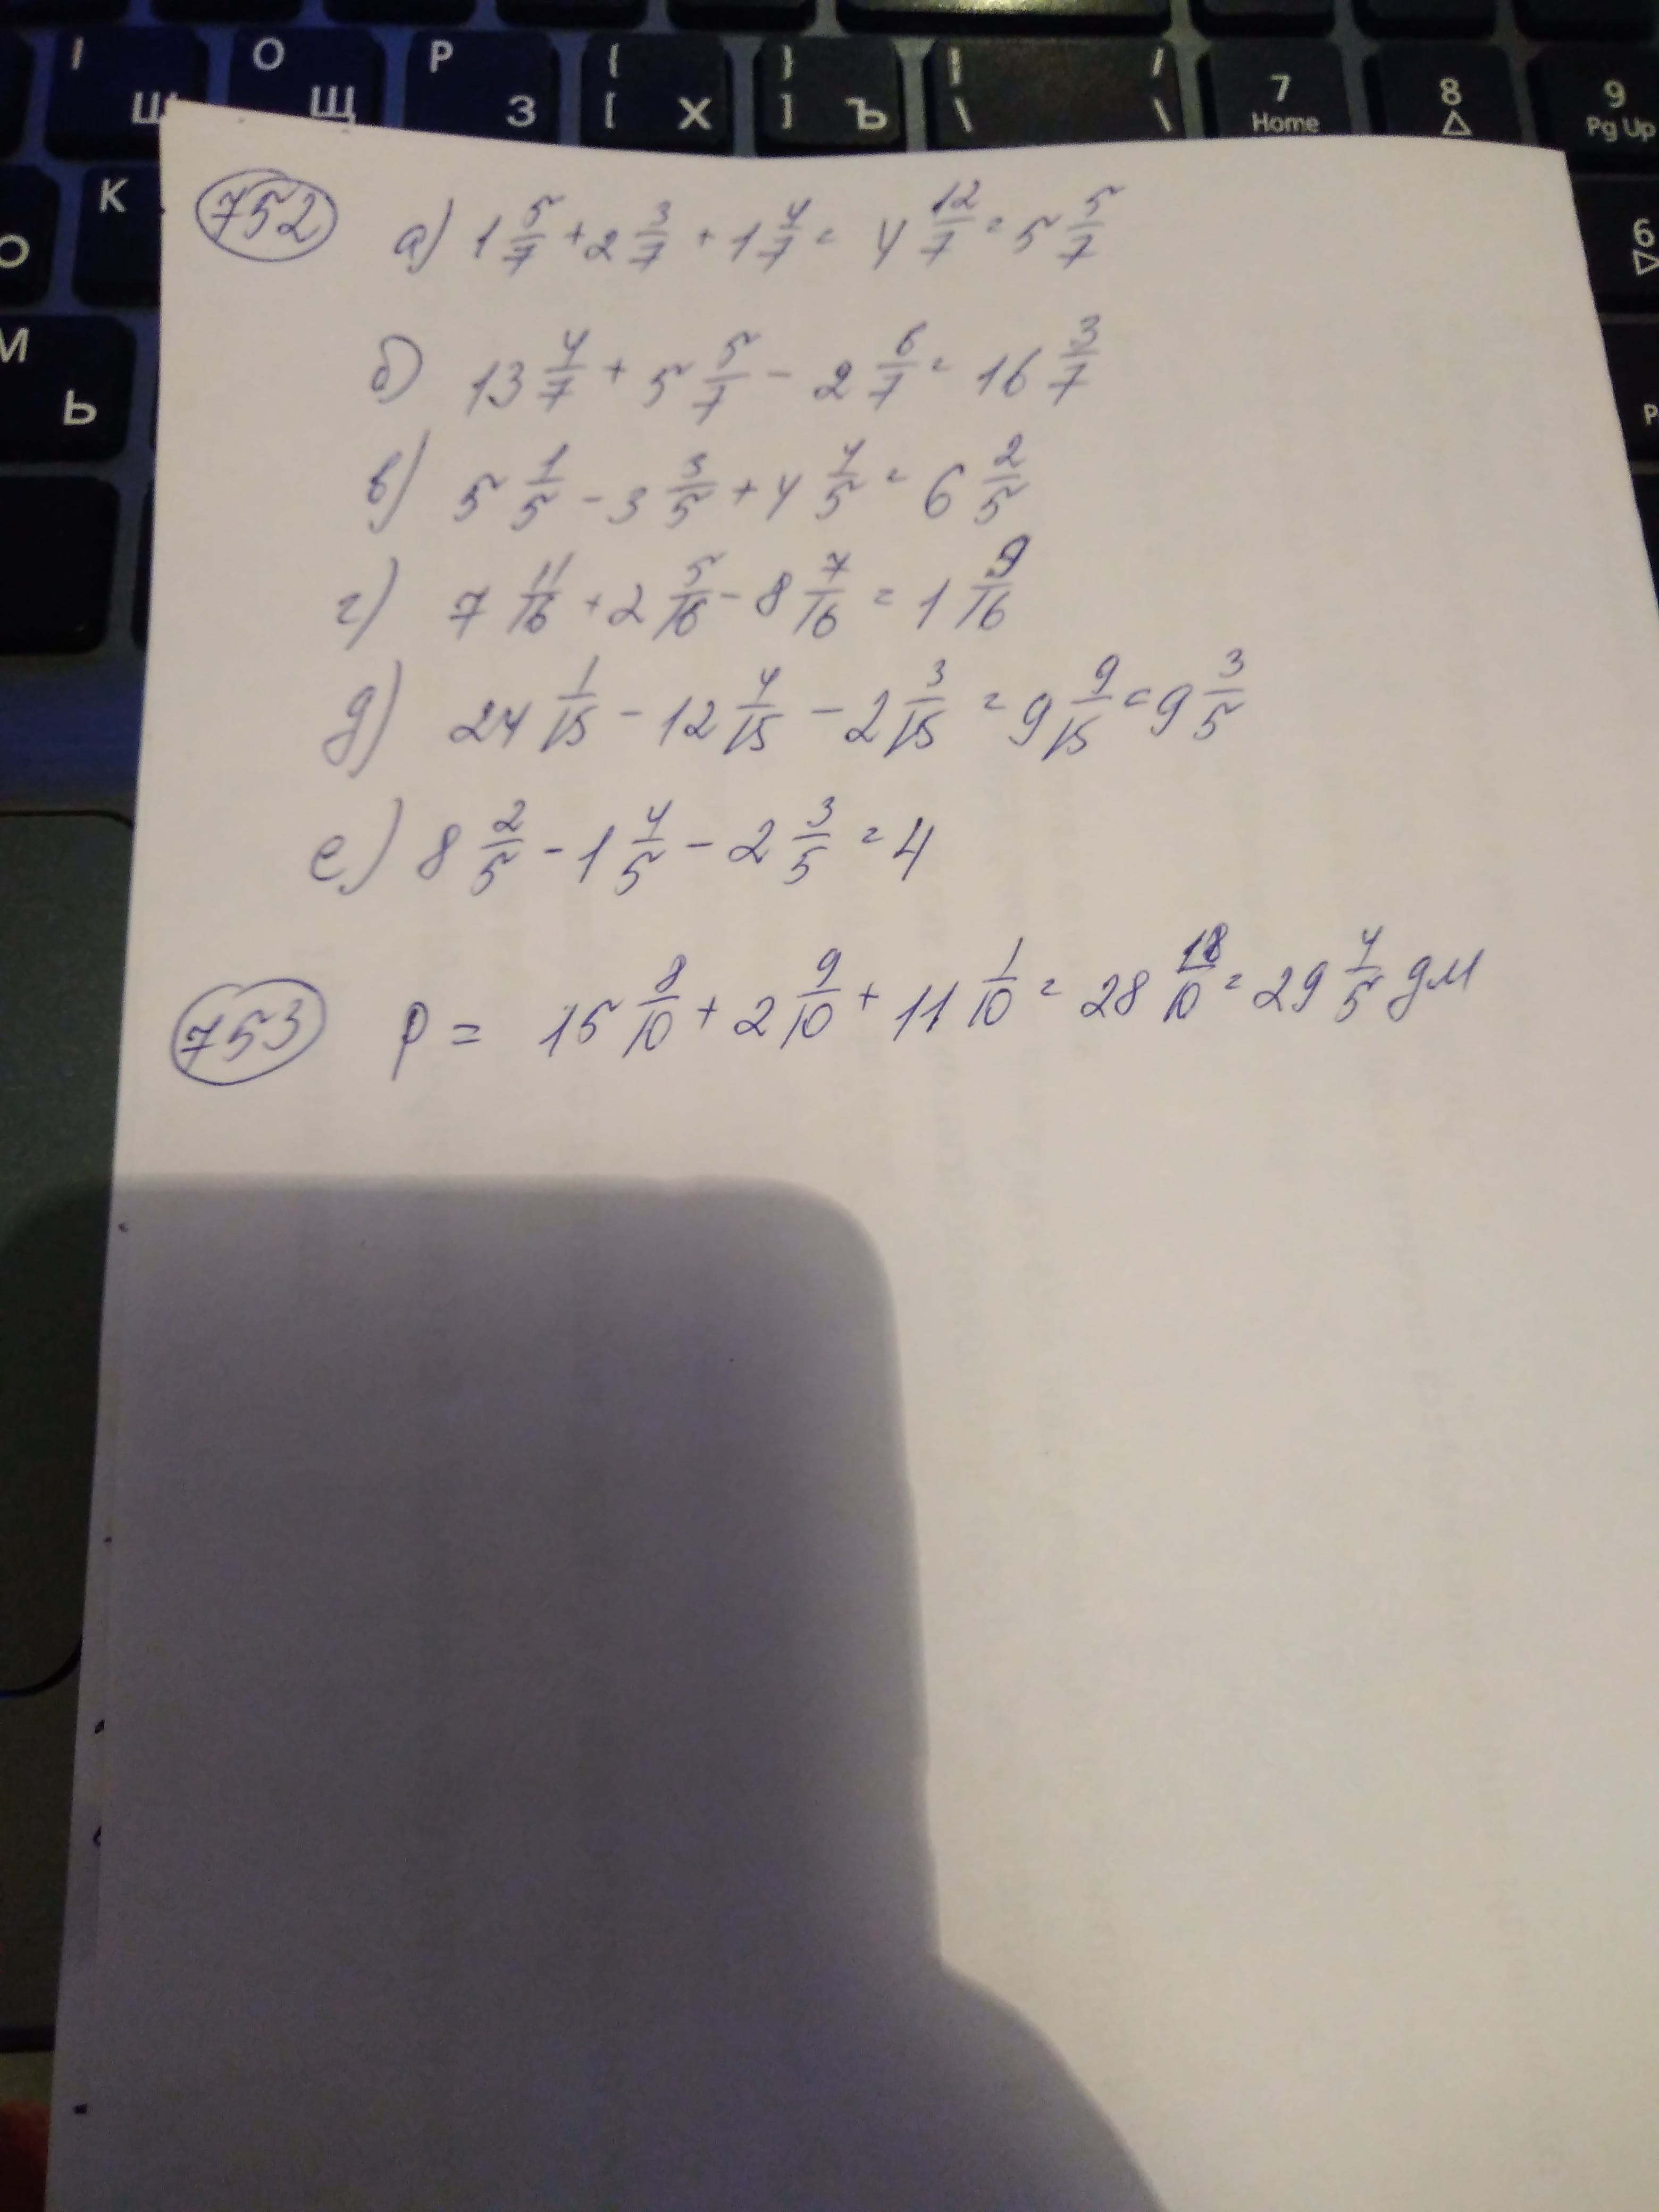 I Щ O Щ P З { [ Х } ] Ъ | \ / \ 7 Home 8 9 Pg Up
К 6
М Ь
752 а) 1 5/7 + 2 3/7 + 1 4/7 = 4 12/7 = 5 5/7
б) 13 4/7 + 5 5/7 - 2 6/7 = 16 3/7
в) 5 1/5 - 3 3/5 + 4 4/5 = 6 2/5
г) 7 11/16 + 2 5/16 - 8 7/16 = 1 9/16
д) 24 1/15 - 12 4/15 - 2 3/15 = 9 9/15 = 9 3/5
е) 8 2/5 - 1 4/5 - 2 3/5 = 4
753 P = 15 8/10 + 2 9/10 + 11 1/10 = 28 18/10 = 29 4/5 дм